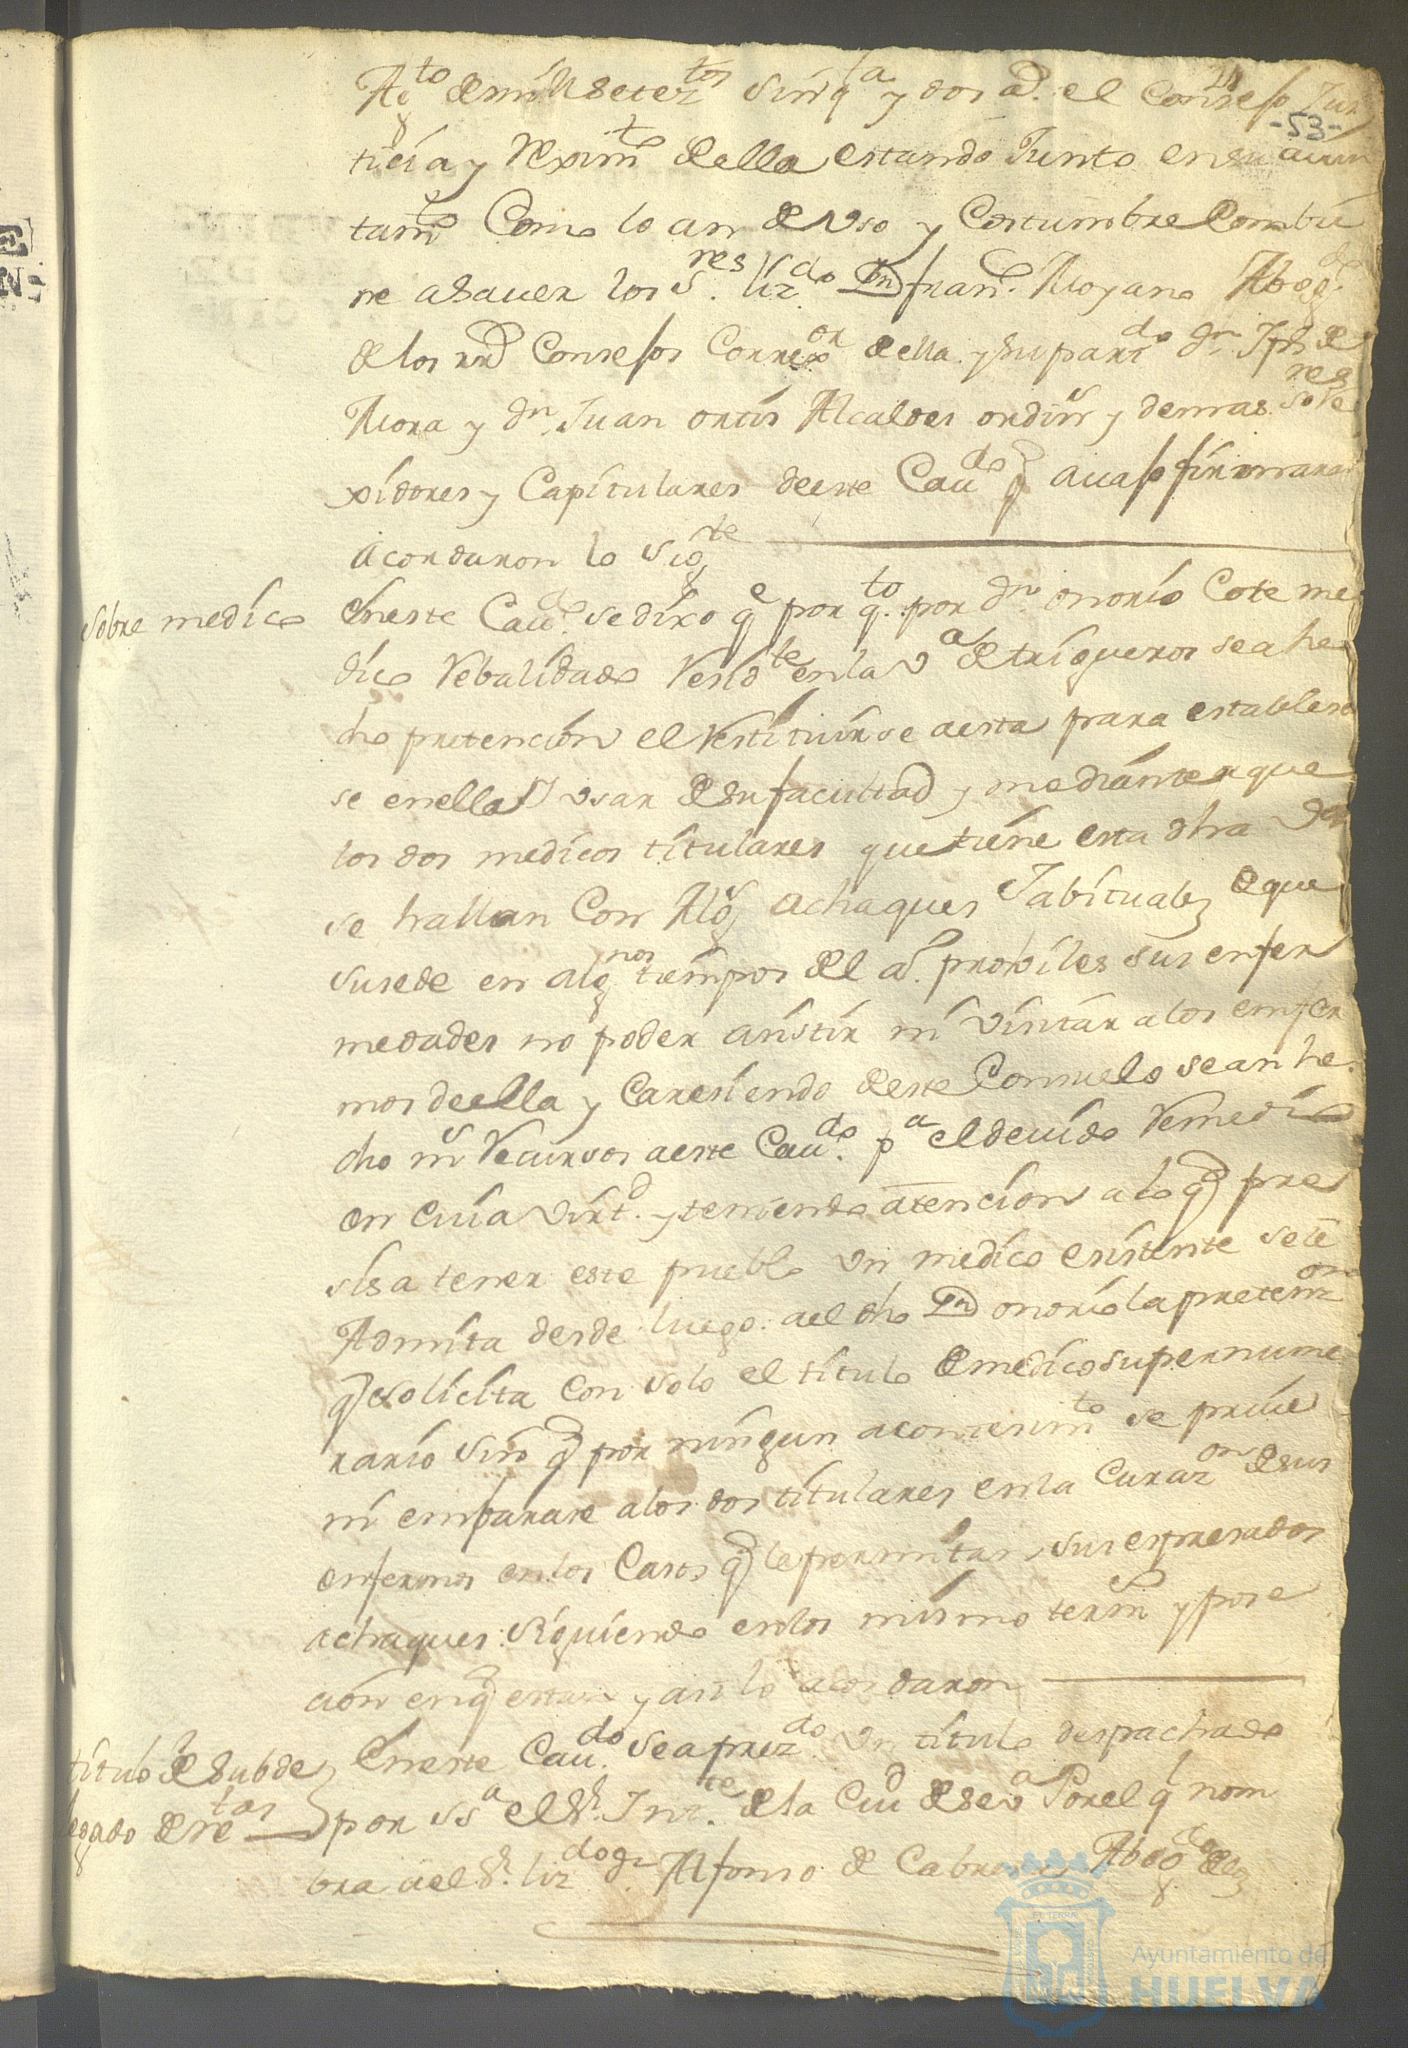 Agto de mill seteztos sinqta y dos as. el Consejo Jus
-53-
ticia y Reximto de ella estando Junto en su aiun
tamto Como lo an de Uso y Costumbre Combie
ne a saver los Sres. lizdo. Dn fran.co Moyano Abogdo.
de los rrs Consejos Correxor de ella y su partdo dn. Jph de
Mora y dn. Juan ortis Alcaldes ordins y demas Sres Re
xidores y Capitulares de este Cavdo q avajo firmaran
Acordaron lo Sigte
Sobre medico
En este Cavdo. se dixo qe por qto. por dn onorio Cote me
dico Rebalidado Residte en la Va de trigueros se a he
cho pretencion el Restituirse a esta para establecer
se en ella Y usar de su facultad y mediante a que
los dos medicos titulares que tiene esta dha Va
se hallan Con Algs achaques Jabituales de que
susede en algnos tiempos del as. prolixos sus enfer
medades no poder asistir ni visitar a los enfer
mos de ella y Caresiendo de este Consuelo se an he
cho ms Recursos a este Cavdo. pa el devido Remedio
en cuia virtd. y teniendo atencion a lo q pre
sisa tener este pueblo un medico existente se le
Admita desde luego a el dho Dn onorio la pretenzon
q solicita con solo el titulo de medico supernume
rario sin q por ningun acontesimto se prive
ni embarase a los dos titulares en la Curazon de sus
enfermos en los Casos q le permitan sus expresados
achaques siguiendo en los mismo term y pose
cion en q estan y asi lo acordaron
titulo de subde
legado de retas
En este Cavdo se a prezdo. un titulo despachado
por ssa el Sr. Intte. de la Ciud de Seva Por el ql nom
bra a el Sr. lizdo dn Alfonso de Cabrera Abogdo de los
Ayuntamiento de
HUELVA